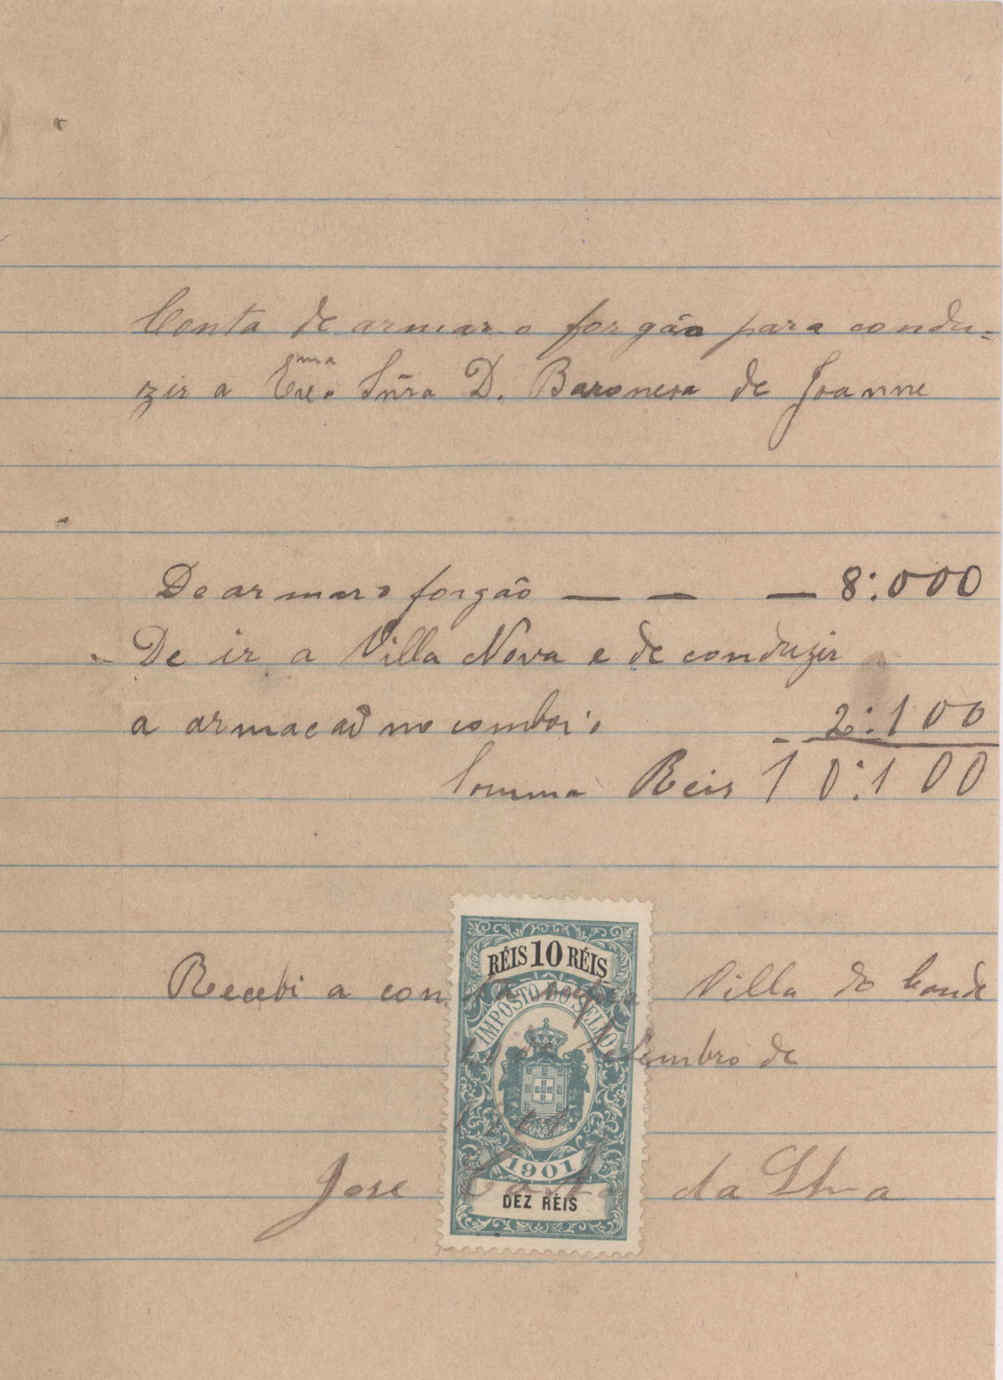 Conta de armar o forgão para condu-
zir a Exma. Snra D. Baronesa de Joanne
De armar o forgão — — — 8:000
De ir a Villa Nova e de conduzir
a armacaõ no comboio 2:100
Somma Reis 10:100
RÉIS 10 RÉIS
IMPOSTO DO SELLO
1901
DEZ RÉIS
Recebi a conta Villa do Conde
Setembro de
José Costa da Silva